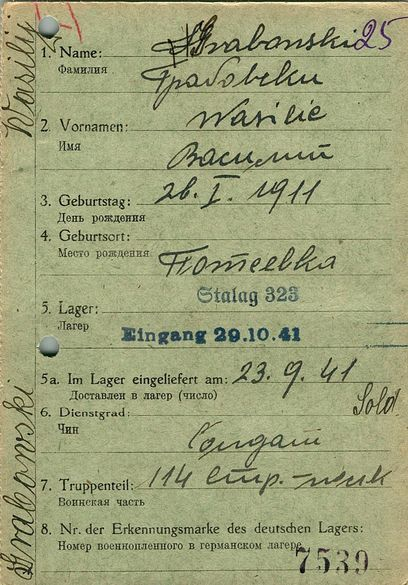 Wasilij
Grabowski
25
1. Name: Grabonski
Фамилия
Грабовски
2. Vornamen: Wasilie
Имя
Василий
3. Geburtstag: 26. I. 1911
День рождения
4. Geburtsort:
Место рождения Потеевка
Stalag 323
5. Lager:
Лагер
Eingang 29.10.41
5a. Im Lager eingeliefert am: 23. 9. 41
Доставлен в лагер (число)
6. Dienstgrad: Sold
Чин
Солдат
7. Truppenteil: 114 Стр.-полк
Воинская часть
8. Nr. der Erkennungsmarke des deutschen Lagers:
Номер военнопленного в германском лагере
7539